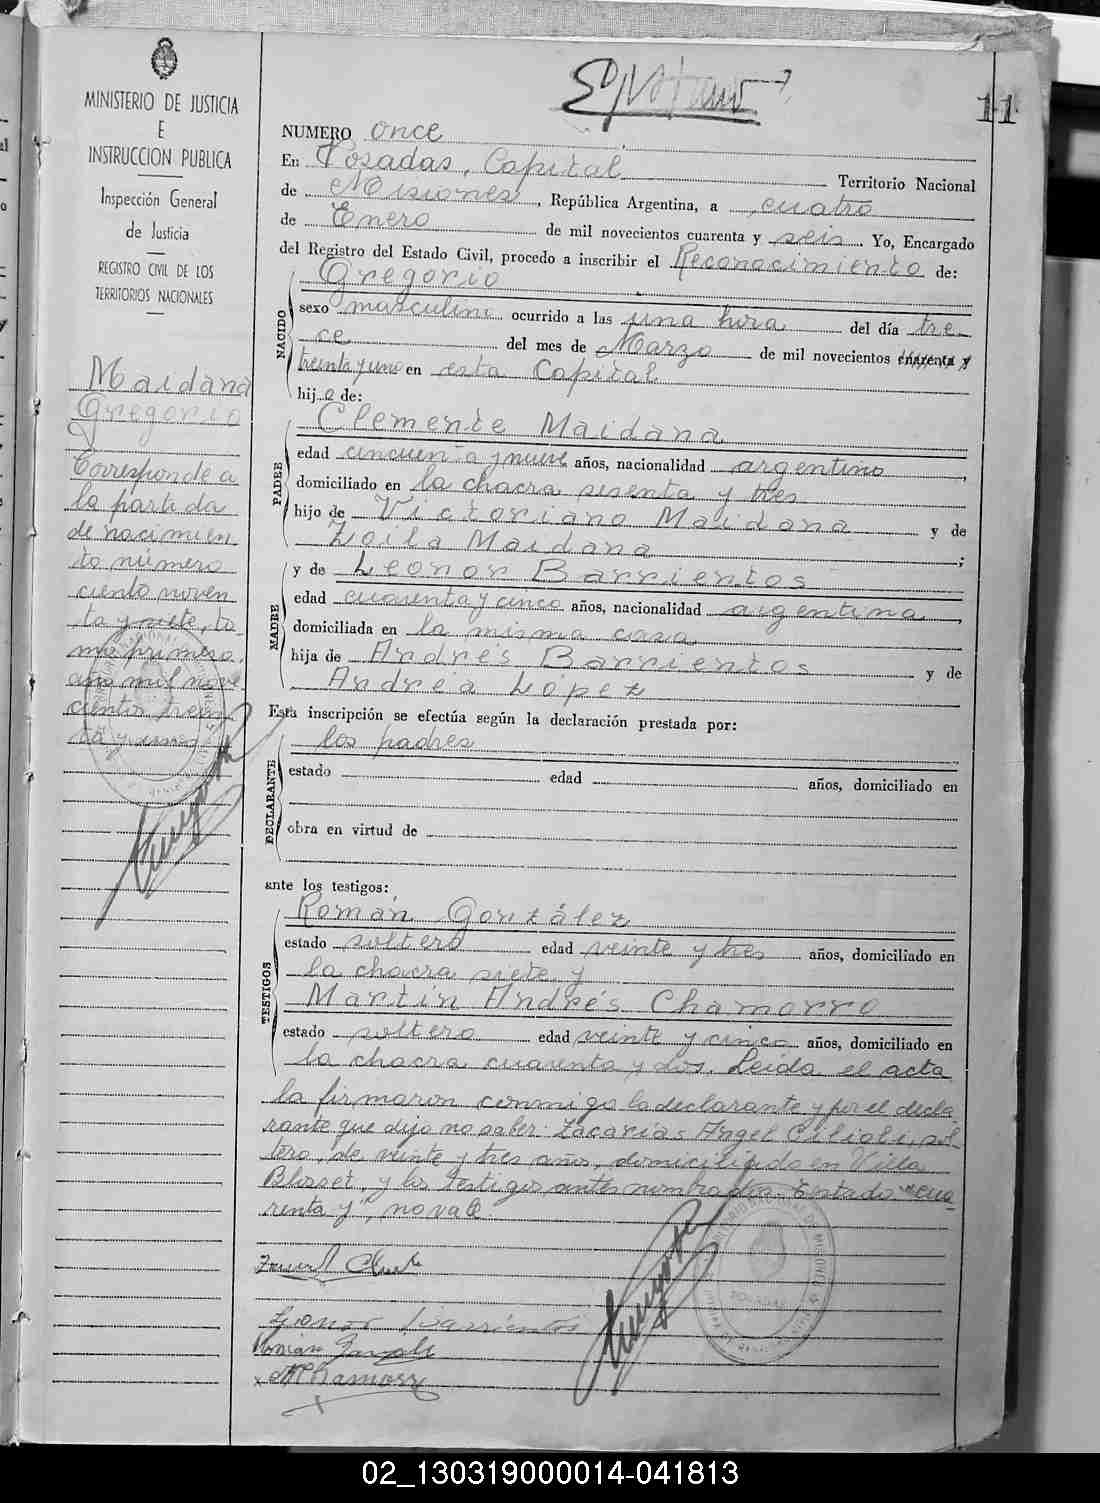 11
MINISTERIO DE JUSTICIA
E
INSTRUCCION PUBLICA
Inspección General
de Justicia
REGISTRO CIVIL DE LOS
TERRITORIOS NACIONALES
Maidana
Gregorio
Corresponde a
la partida
de nacimien
to número
ciento noven
ta y siete, to
mo primero,
año mil nove
cientos trein
ta y uno
NUMERO once
En Posadas, Capital Territorio Nacional
de Misiones, República Argentina, a cuatro
de Enero de mil novecientos cuarenta y seis. Yo, Encargado
del Registro del Estado Civil, procedo a inscribir el Reconocimiento de:
NACIDO
Gregorio
sexo masculino ocurrido a las una hora del día tre-
ce del mes de Marzo de mil novecientos cuarenta y
treinta y uno en esta Capital
hijo de:
PADRE
Clemente Maidana
edad cincuenta y nueve años, nacionalidad argentino,
domiciliado en la chacra sesenta y tres
hijo de Victoriano Maidana y de
Zoila Maidana;
MADRE
y de Leonor Barrientos
edad cuarenta y cinco años, nacionalidad argentina,
domiciliada en la misma casa
hija de Andrés Barrientos y de
Andréa López
Esta inscripción se efectúa según la declaración prestada por:
DECLARANTE
los padres
estado edad años, domiciliado en
obra en virtud de
ante los testigos:
TESTIGOS
Román González
estado soltero edad veinte y tres años, domiciliado en
la chacra siete y
Martín Andrés Chamorro
estado soltero edad veinte y cinco años, domiciliado en
la chacra cuarenta y dos. Leída el acta
la firmaron conmigo la declarante y por el decla
rante que dijo no saber: Zacarías Angel, sol
tero, de veinte y tres años, domiciliado en Villa
Blosset, y los testigos antes nombrados. Testado "cua
renta y", no vale.
Leonor Barrientos
02_130319000014-041813